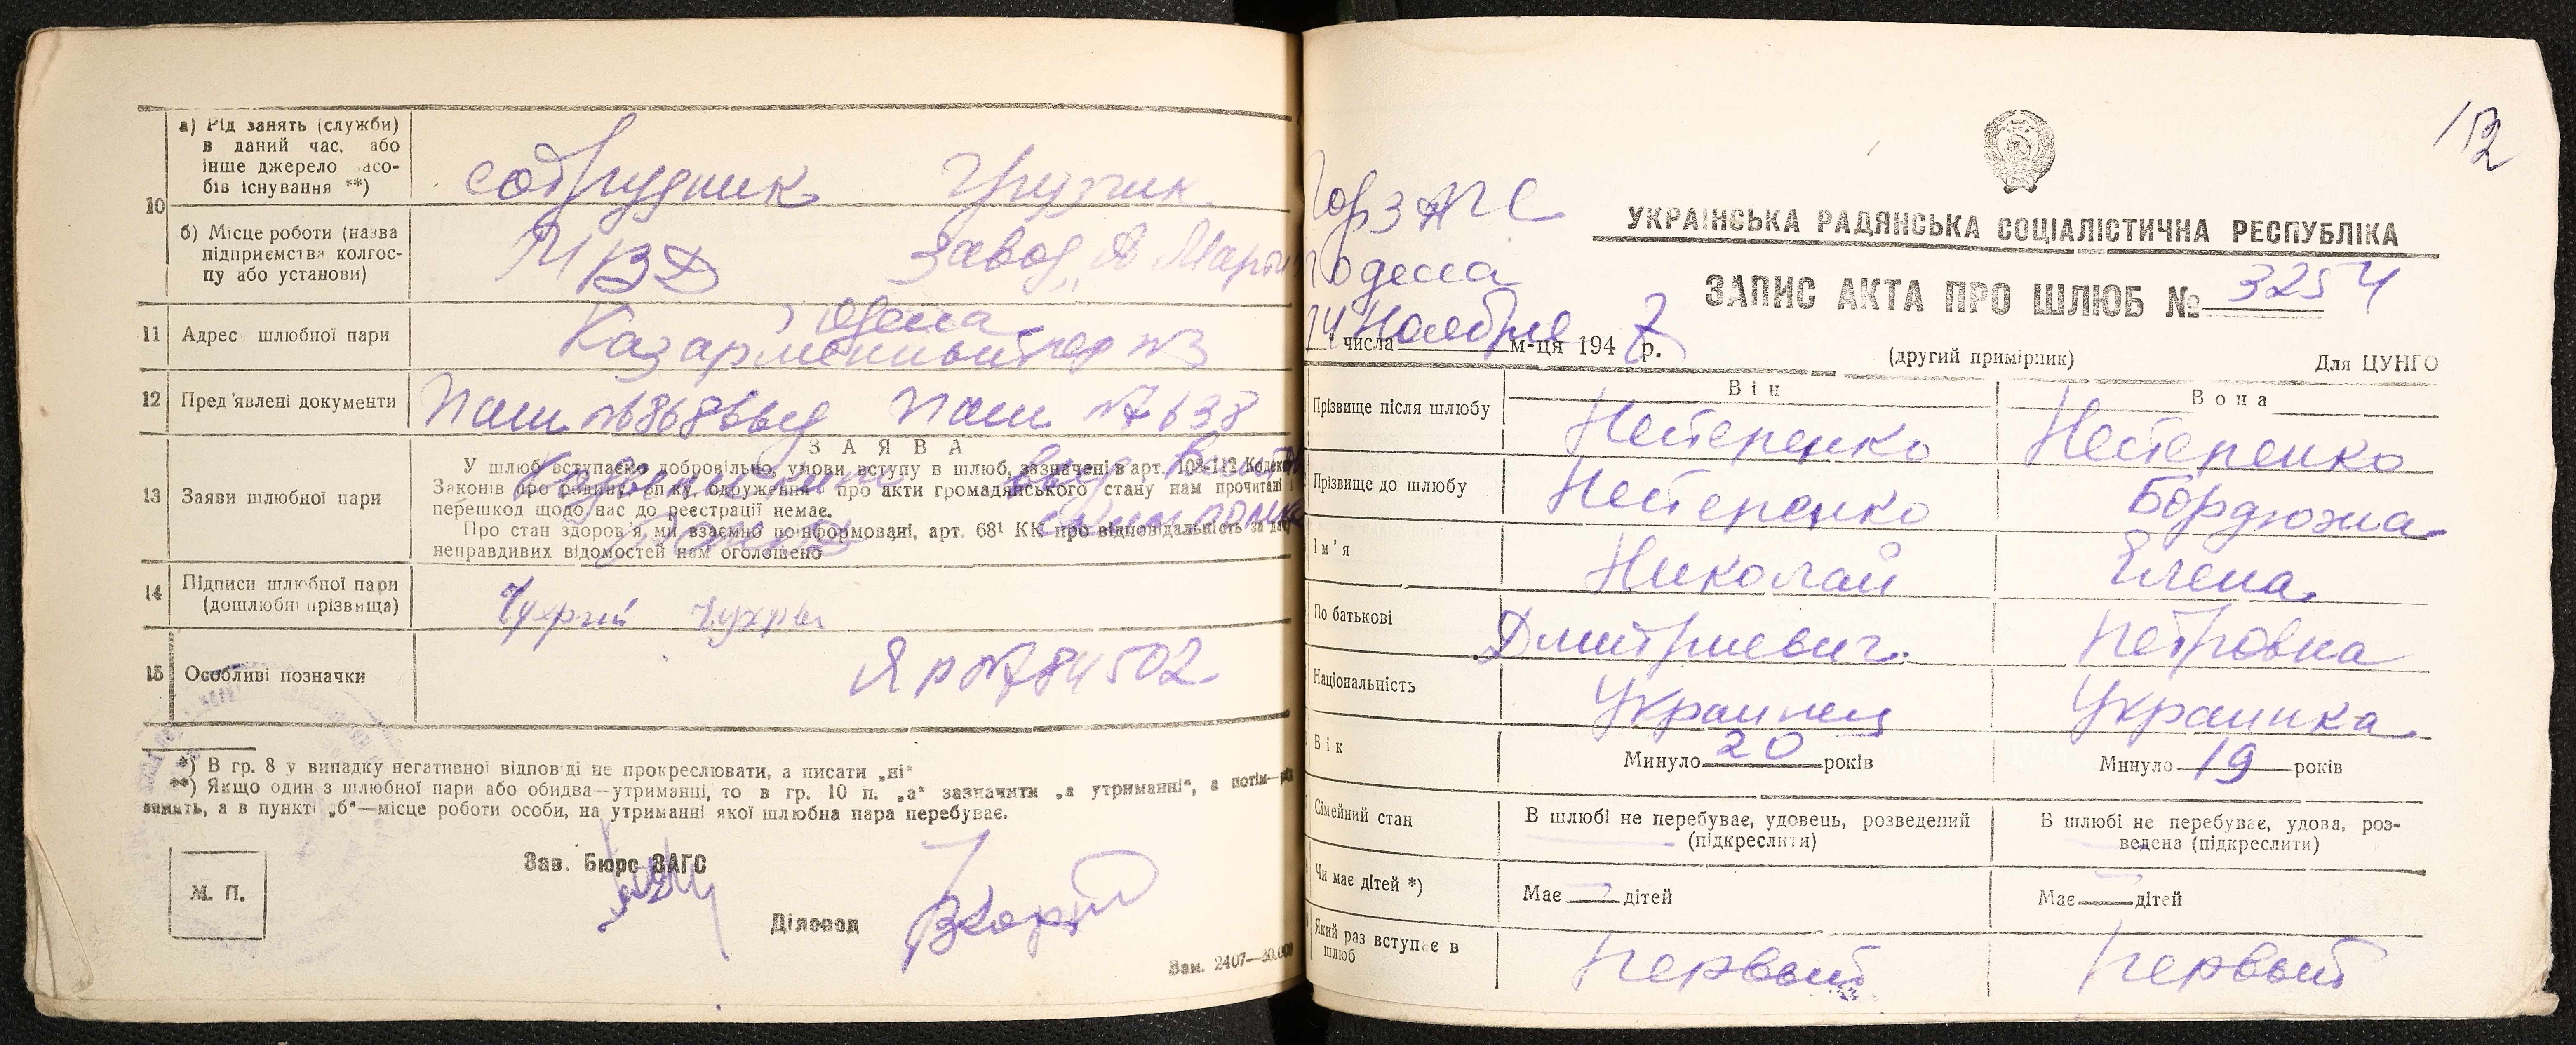 10
а) Рід занять (служби)
в даний час, або
інше джерело засо-
бів існування **)
сотрудник грузчик
б) Місце роботи (назва
підприємства колгос-
пу або установи)
МВД завод „А Марти
11 Адрес шлюбної пари
г Одесса
Казарменный пер №3
12 Пред'явлені документи
Пасп. №68686 выд Пасп. №7638
13 Заяви шлюбної пари
З А Я В А
У шлюб вступаємо добровільно, умови вступу в шлюб, зазначені в арт. 108-112 Кодексу
Законів про родину, опіку, одруження про акти громадянського стану нам прочитані і
перешкод щодо нас до реєстрації немає.
Про стан здоров'я ми взаємно поінформовані, арт. 68¹ КК про відповідальність за дачу
неправдивих відомостей нам оголошено
14 Підписи шлюбної пари
(дошлюбні прізвища)
15 Особливі позначки
Я р №784502
*) В гр. 8 у випадку негативної відповіді не прокреслювати, а писати „ні“
**) Якщо один з шлюбної пари або обидва—утриманці, то в гр. 10 п. „а“ зазначити „а утриманні“, а потім—рід
занять, а в пункті „б“—місце роботи особи, на утриманні якої шлюбна пара перебуває.
М. П.
Зав. Бюро ЗАГС
Діловод
Зам. 2407—
12
ГорЗАГС
г Одесса
УКРАЇНСЬКА РАДЯНСЬКА СОЦІАЛІСТИЧНА РЕСПУБЛІКА
ЗАПИС АКТА ПРО ШЛЮБ № 3254
14 числа Ноября м-ця 1947 р.
(другий примірник) Для ЦУНГО
Він Вона
Прізвище після шлюбу Нестеренко Нестеренко
Прізвище до шлюбу Нестеренко Бордюжа
Ім'я Николай Елена
По батькові Дмитриевич. Петровна
Національність Украинец Украинка
Вік Минуло 20 років Минуло 19 років
Сімейний стан
В шлюбі не перебуває, удовець, розведений
(підкреслити)
В шлюбі не перебуває, удова, роз-
ведена (підкреслити)
Чи має дітей *) Має — дітей Має — дітей
Який раз вступає в
шлюб
Первый Первый